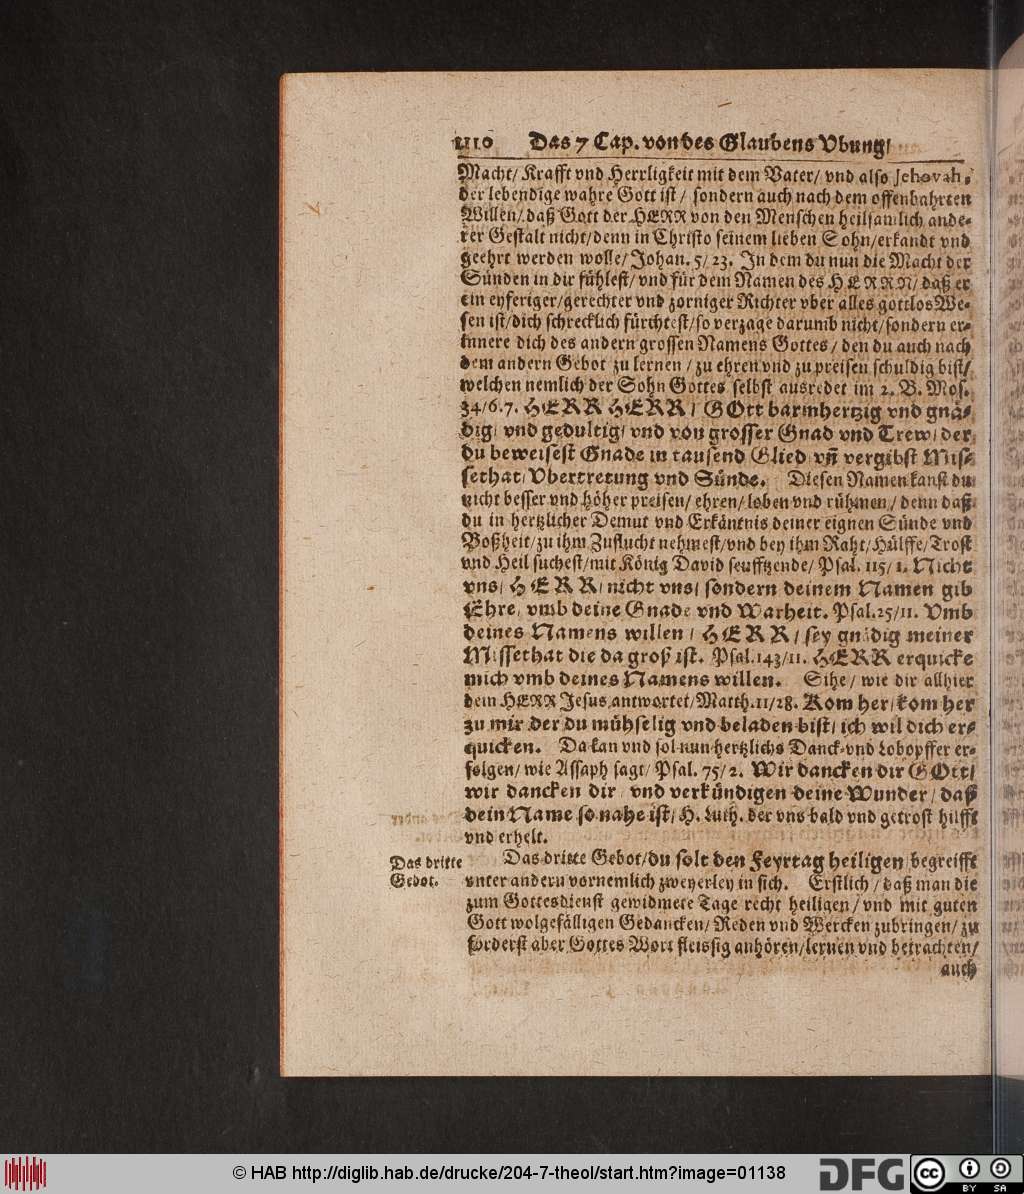 1110 Das 7 Cap. von des Glaubens Vbung/
Macht/ Krafft vnd Herrligkeit mit dem Vater/ vnd also Jehovah,
der lebendige wahre Gott ist/ sondern auch nach dem offenbahrten
Willen/ daß Gott der HERR von den Menschen heilsamlich ande-
rer Gestalt nicht/ denn in Christo seinem lieben Sohn/ erkandt vnd
geehrt werden wolle/ Johan. 5/ 23. In dem du nun die Macht der
Sünden in dir fühlest/ vnd für dem Namen des HERRN/ daß er
ein eyferiger/ gerechter vnd zorniger Richter vber alles gottlos We-
sen ist/ dich schrecklich fürchtest/ so verzage darumb nicht/ sondern er-
innere dich des andern grossen Namens Gottes/ den du auch nach
dem andern Gebot zu lernen/ zu ehren vnd zu preisen schuldig bist/
welchen nemlich der Sohn Gottes selbst ausredet im 2. B. Mos.
34/ 6. 7. HERR HERR/ GOtt barmhertzig vnd gnä-
dig/ vnd gedultig/ vnd von grosser Gnad vnd Trew/ der
du beweisest Gnade in tausend Glied/ vñ vergibst Misse-
sethat/ Vbertretung vnd Sünde. Diesen Namen kanst du
nicht besser vnd höher preisen/ ehren/ loben vnd rühmen/ denn daß
du in hertzlicher Demut vnd Erkäntnis deiner eignen Sünde vnd
Boßheit/ zu ihm Zuflucht nehmest/ vnd bey ihm Raht/ Hülffe/ Trost
vnd Heil suchest/ mit König David seufftzende/ Psal. 115/ 1. Nicht
vns/ HERR/ nicht vns/ sondern deinem Namen gib
Ehre/ vmb deine Gnade vnd Warheit. Psal. 25/ 11. Vmb
deines Namens willen/ HERR/ sey gnädig meiner
Missethat die da groß ist. Psal. 143/ 11. HERR erquicke
mich vmb deines Namens willen. Sihe/ wie dir allhier
dem HERR Jesus antwortet/ Matth. 11/ 28. Kom her/ kom her
zu mir der du mühselig vnd beladen bist/ ich wil dich er-
quicken. Da kan vnd sol nun hertzlichs Danck- vnd Lobopffer er-
folgen/ wie Assaph sagt/ Psal. 75/ 2. Wir dancken dir GOtt/
wir dancken dir/ vnd verkündigen deine Wunder/ daß
dein Name so nahe ist/ H. Luth. der vns bald vnd getrost hilfft
vnd erhelt.
Das dritte
Gebot.
Das dritte Gebot/ du solt den Feyrtag heiligen/ begreifft
vnter andern vornemlich zweyerley in sich. Erstlich/ daß man die
zum Gottesdienst gewidmete Tage recht heiligen/ vnd mit guten
Gott wolgefälligen Gedancken/ Reden vnd Wercken zubringen/ zu
förderst aber Gottes Wort fleissig anhören/ lernen vnd betrachten/
auch
© HAB http://diglib.hab.de/drucke/204-7-theol/start.htm?image=01138
DFG
cc BY SA